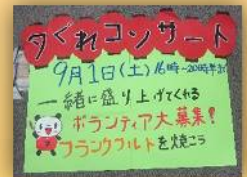 夕ぐれコンサート
9月1日(土)16時~20時半
一緒に盛り上げてくれる
ボランティア大募集!
フランクフルトを焼こう